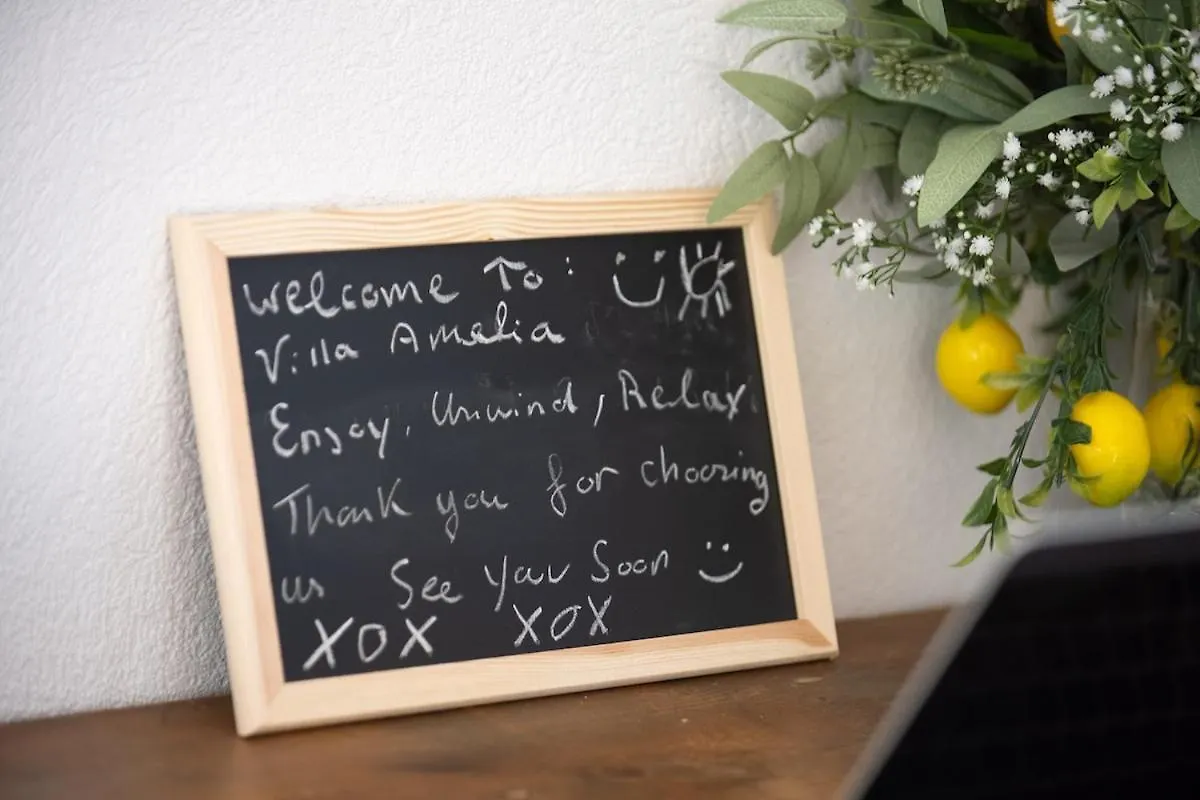 Welcome To :
Villa Amelia
Enjoy, Unwind, Relax.
Thank you for choosing
us See You Soon
XOX XOX